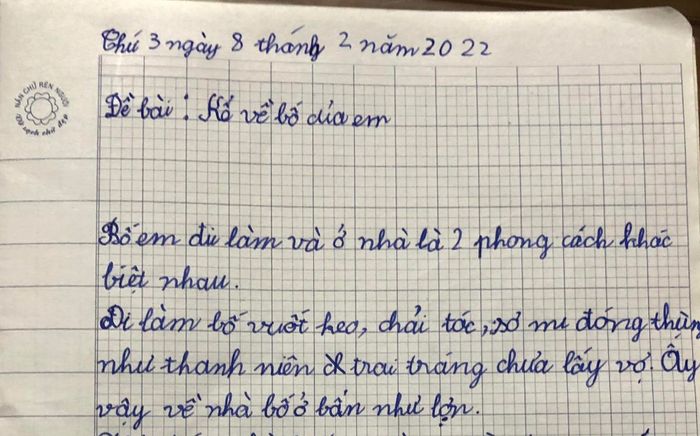 Thứ 3 ngày 8 tháng 2 năm 2022
NẮN CHỮ RÈN NGƯỜI
Vở sạch chữ đẹp
Đề bài: Kể về bố của em
Bố em đi làm và ở nhà là 2 phong cách khác
biệt nhau.
Đi làm bố vuốt keo, chải tóc, sơ mi đóng thùng
như thanh niên trai tráng chưa lấy vợ. Ấy
vậy về nhà bố ở bẩn như lợn.